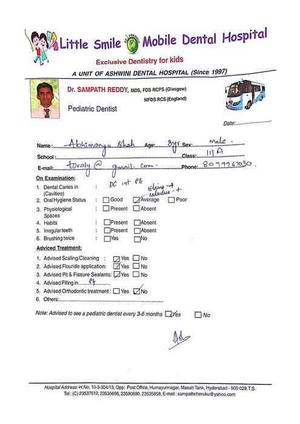 Little Smile Mobile Dental Hospital
Exclusive Dentistry for kids
A UNIT OF ASHWINI DENTAL HOSPITAL (Since 1997)
Dr. SAMPATH REDDY, MDS, FDS RCPS (Glasgow)
MFDS RCS (England)
Pediatric Dentist
Date:
Name: Shah Age: 8yr Sex: male
School: Class: III A
E-mail: @ gmail.com Phone:
On Examination:
1. Dental Caries in (Cavities) DC
2. Oral Hygiene Status Good Average Poor
3. Physiological Spaces Present Absent
4. Habits Present Absent
5. Irregular teeth Present Absent
6. Brushing twice Yes No
Advised Treatment:
1. Advised Scaling/Cleaning Yes No
2. Advised Flouride application: Yes No
3. Advised Pit & Fissure Sealants: Yes No
4. Advised Filling in
5. Advised Orthodontic treatment: Yes No
6. Others:
Note: Advised to see a pediatric dentist every 3-6 months Yes No
Hospital Address: H.No. 10-3-304/13, Opp: Post Office, Humayunnagar, Masab Tank, Hyderabad - 500 028 T.S.
Tel: (C) 23537612, E-mail: sampathcheruku@yahoo.com